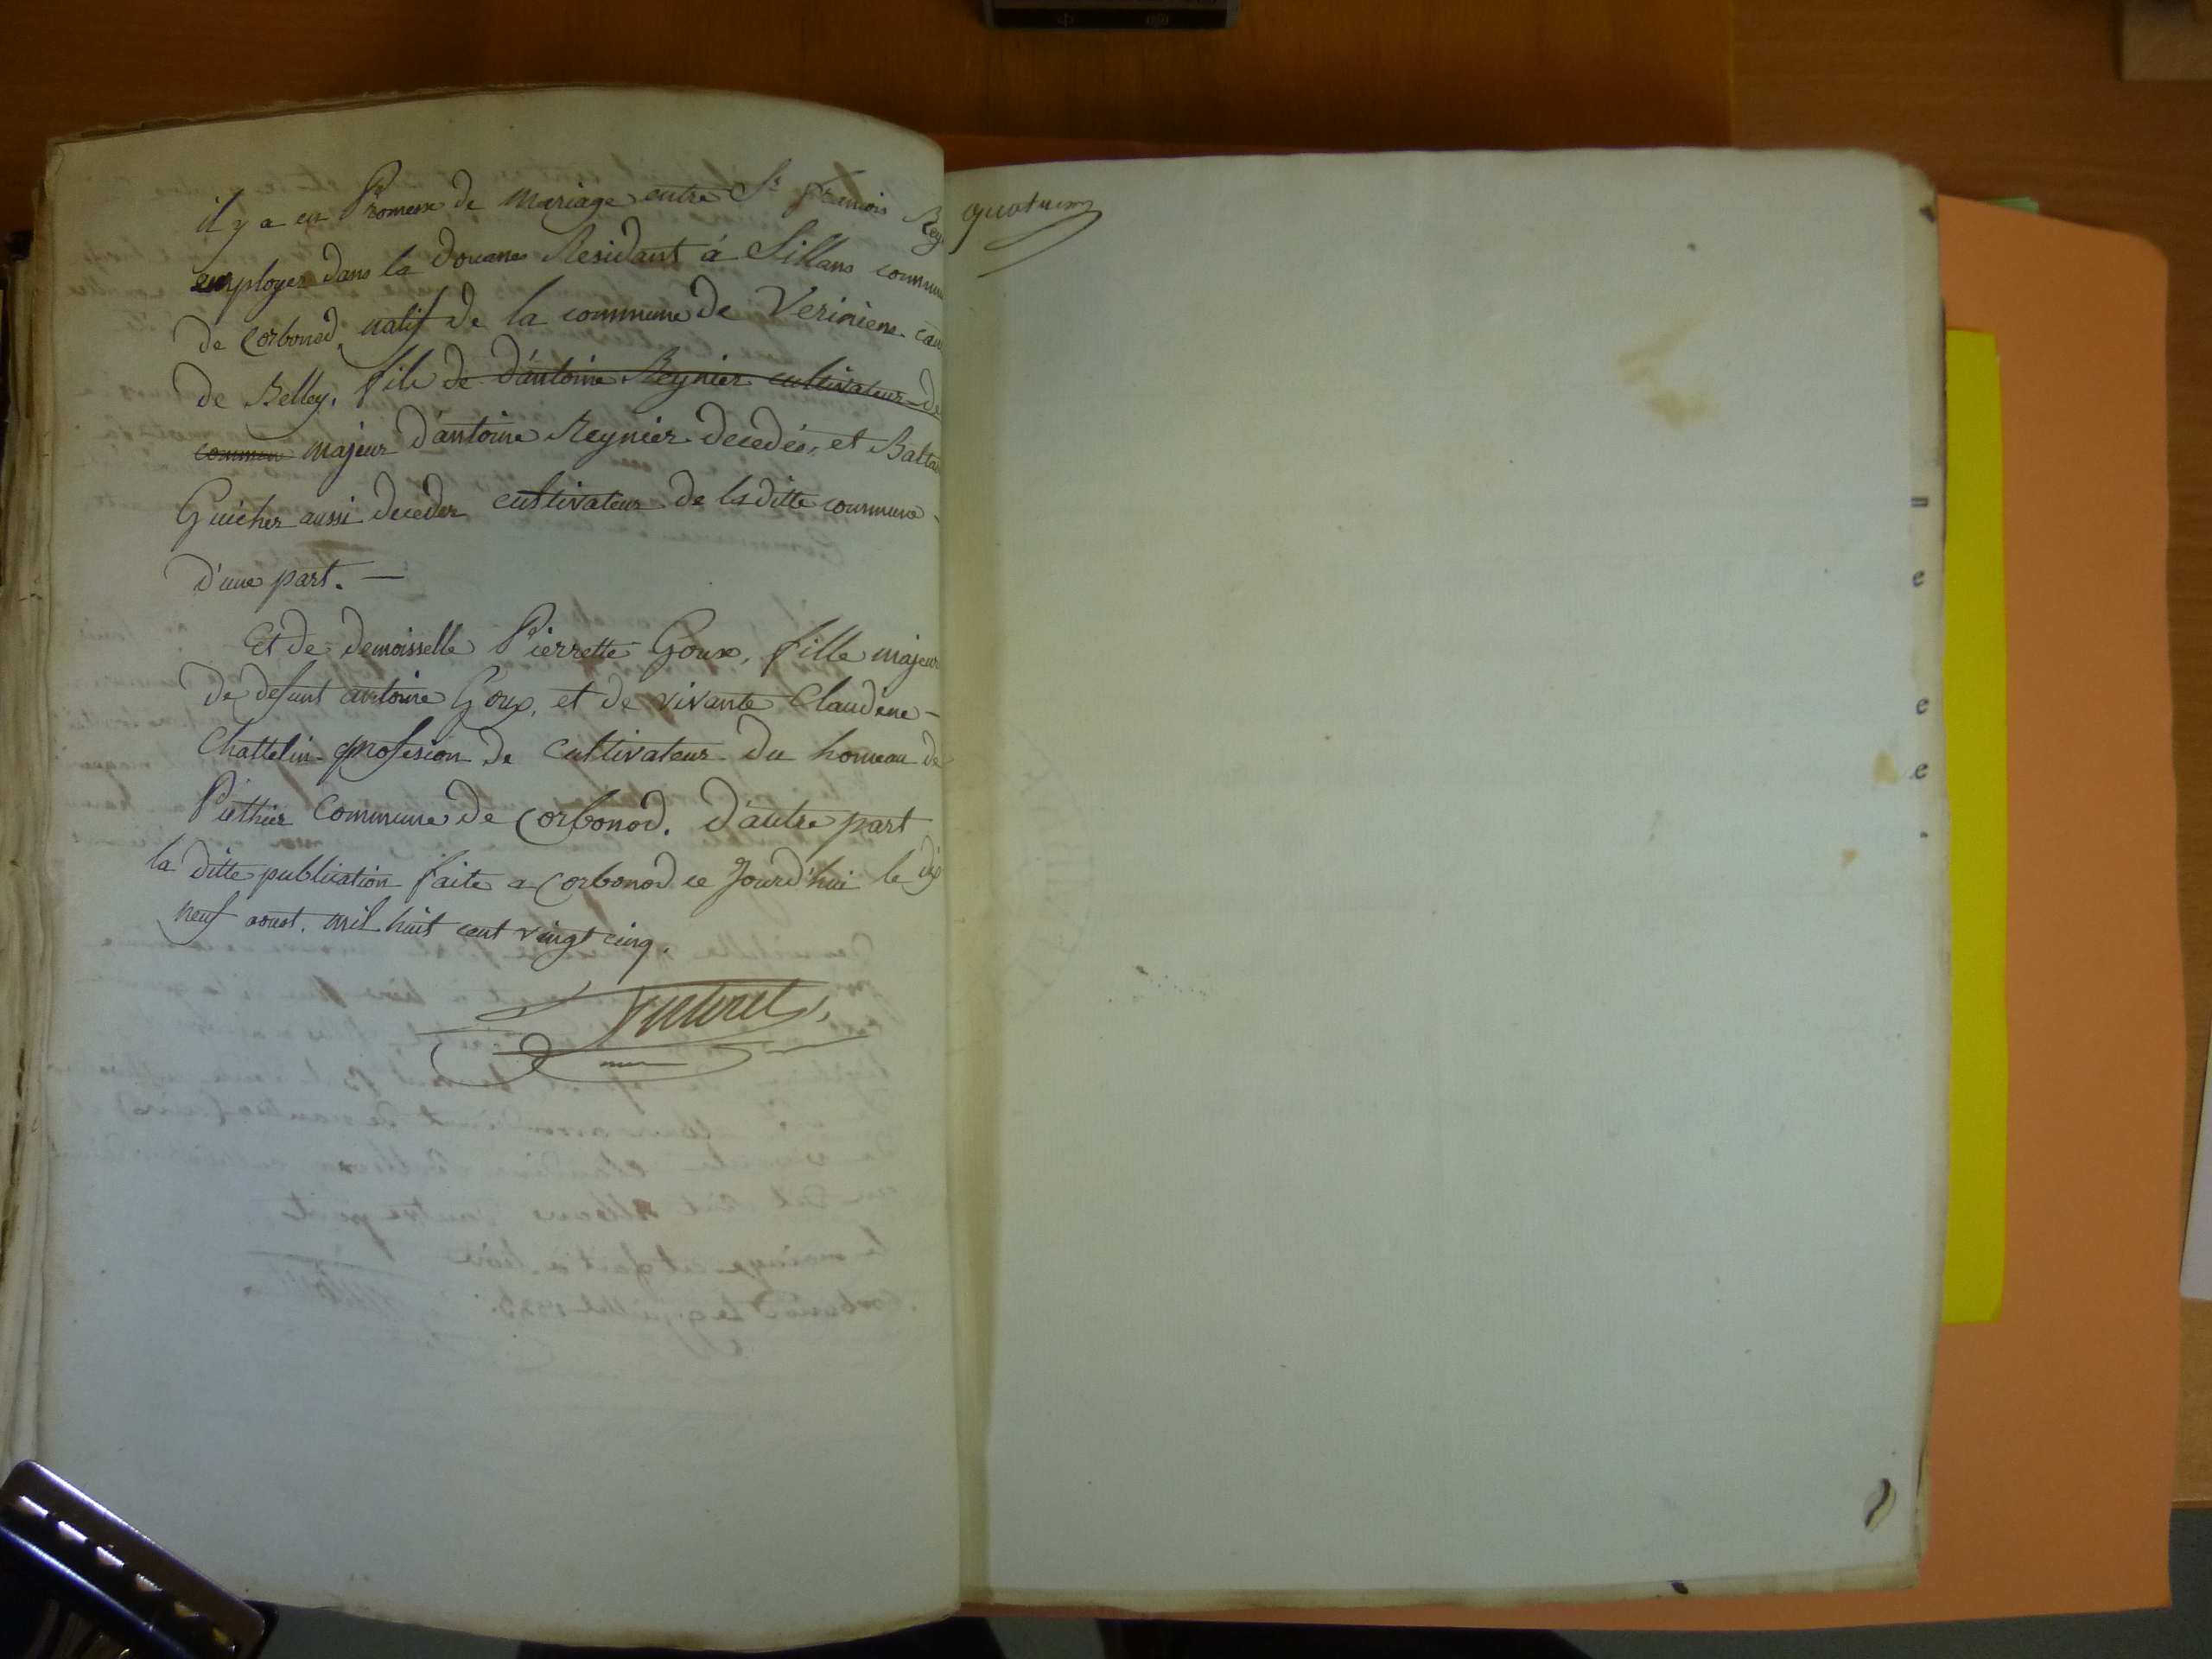 il y a eu Promesse de mariage entre Sr francois Rey
employer dans la Douanes Residant à Sillans commun
de Corbonod, natif de la commune de Verinieu can
de Belley, fils de d'antoine Reynier cultivateur de
commun majeur d'antoine Reynier decedér, et Balta
Guicher aussi deceder cultivateur de laditte commune
d'une part. —
Et de demoisselle Pierrette Goux, fille majeur
de defunt antoine Goux, et de vivante Claudine –
Chattelin profesion de cultivateur du hameau de
Puthier Commune de Corbonod. D'autre part
la ditte publication faite a Corbonod ce Jourd'hui le dix
neuf aoust. mil huit cent vingt cinq.